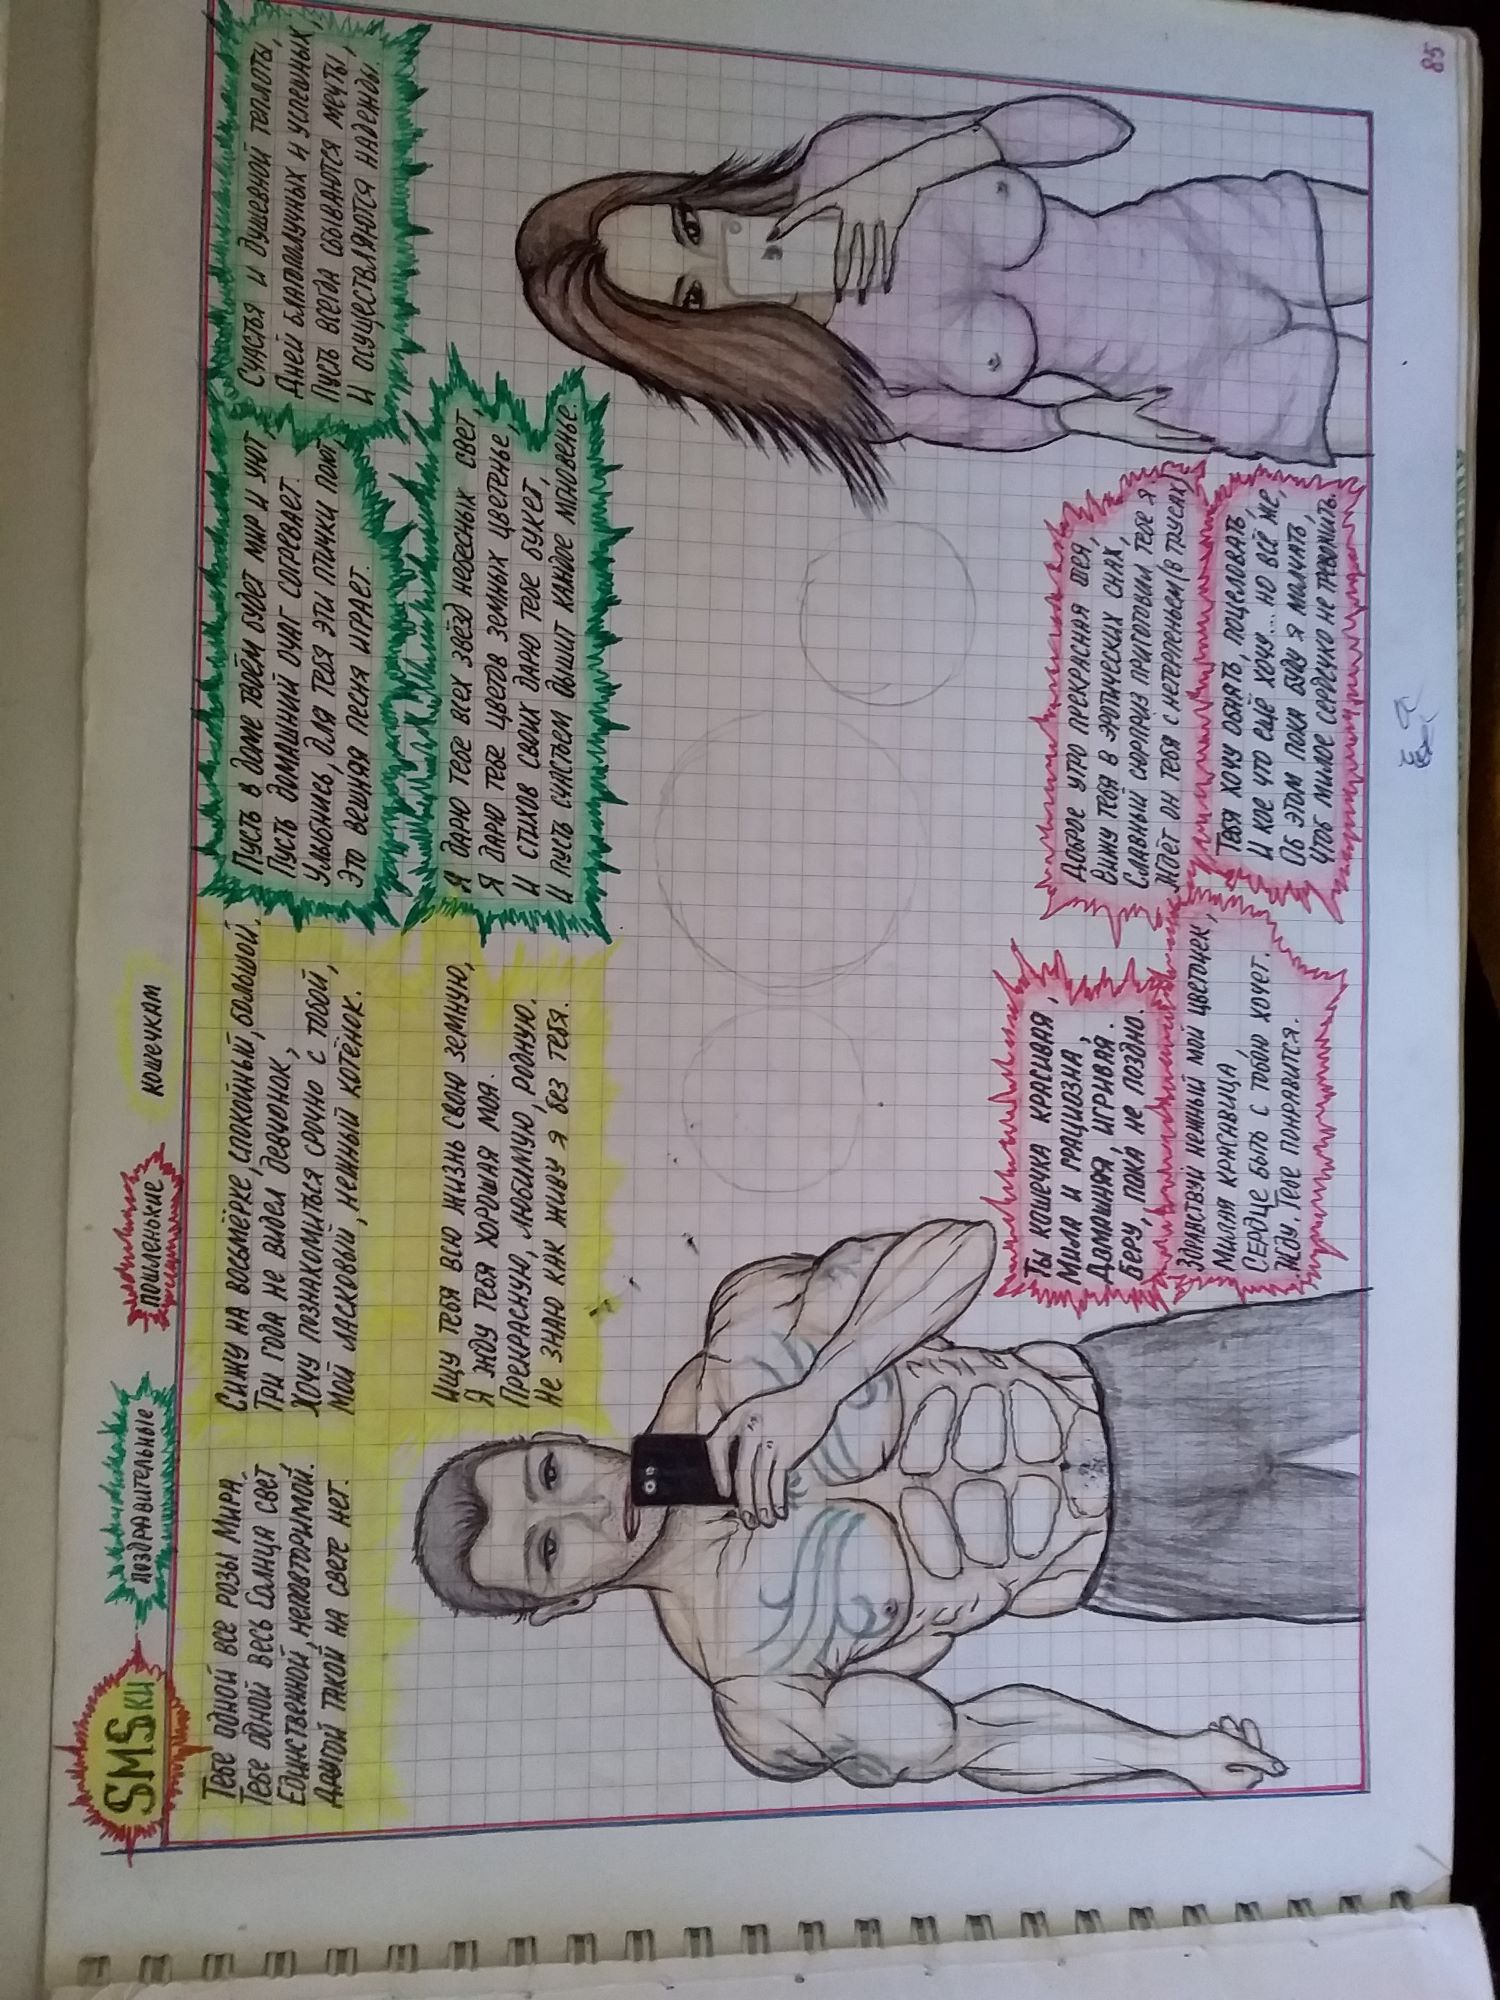 SMSки
поздравительные
пошленькие
кошечкам
Тебе одной все розы Мира.
Тебе одной весь Солнца свет
Единственной, неповторимой.
Другой такой на свете нет.
Сижу на восьмёрке, спокойный, большой.
Три года не видел девчонок,
Хочу познакомиться срочно с тобой,
Мой ласковый, нежный котёнок.
Ищу тебя всю жизнь свою земную,
Я жду тебя хорошая моя.
Прекрасную, любимую, родную.
Не знаю как живу я без тебя.
Пусть в доме твоём будет мир и уют,
Пусть домашний очаг согревает.
Улыбнись, для тебя эти птички поют
Это вешняя песня играет.
Счастья и душевной теплоты,
Дней благополучных и успешных,
Пусть всегда сбываются мечты
И осуществляются надежды.
Я дарю тебе всех звёзд небесных свет,
Я дарю тебе цветов земных цветенье,
И стихов своих дарю тебе букет,
И пусть счастьем дышит каждое мгновенье.
Ты кошечка красивая,
Мила и грациозна,
Домашняя, игривая.
Беру, пока не поздно.
Здравствуй нежный мой цветочек,
Милая красавица
Сердце быть с тобою хочет.
Жду. Тебе понравится.
Доброе утро прекрасная фея,
Вижу тебя в эротических снах,
Славный сюрприз приготовил тебе я
Ждёт он тебя с нетерпеньем (в трусах)
Тебя хочу обнять, поцеловать,
И кое что ещё хочу... но всё же,
Об этом пока буду я молчать,
Чтоб милое сердечко не тревожить.
85